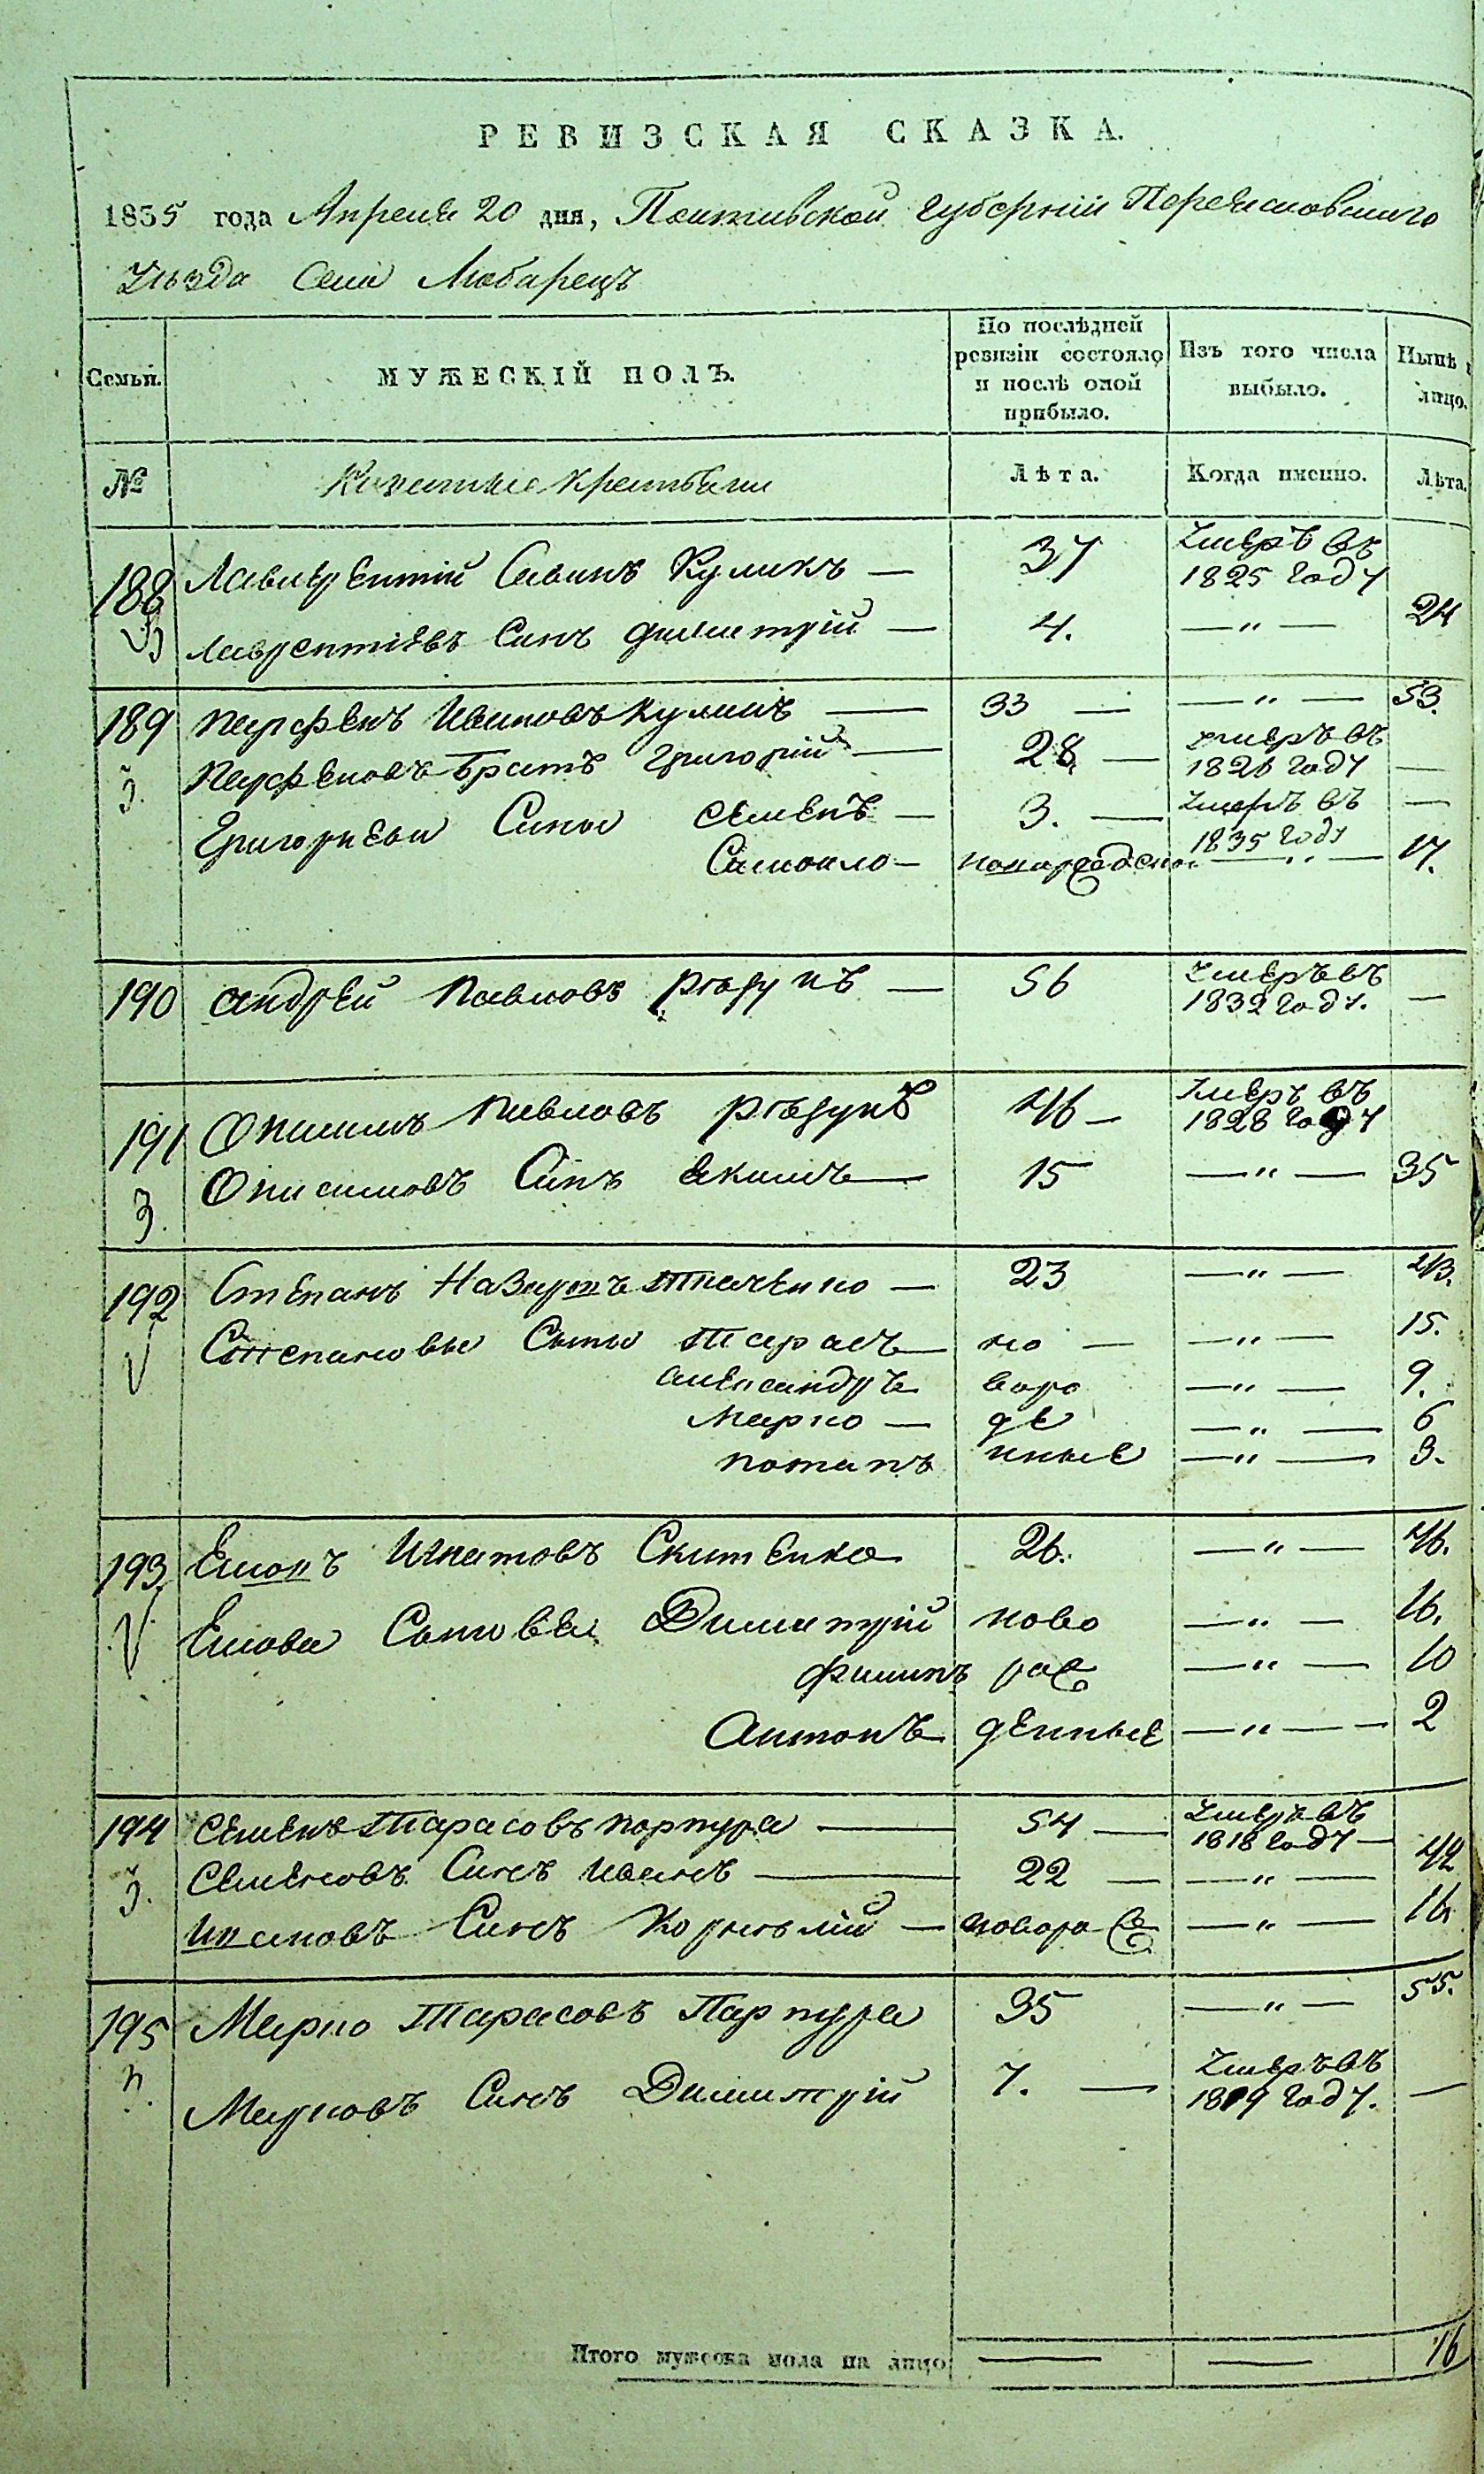 РЕВИЗСКАЯ СКАЗКА.
1835 года Апреля 20 дня, Полтавской Губерніи Переясловского
Уѣзда Села Любарецъ
Семьи.
МУЖЕСКІЙ ПОЛЪ.
По послѣдней ревизіи состояло и послѣ оной прибыло.
Изъ того числа выбыло.
Нынѣ лицо.
№
Казенные Крестьяне
Лѣта.
Когда именно.
Лѣта.
188 Лаврентій Савинъ Куликъ — 37 Умеръ въ 1825 Году
Лаврентіевъ Синъ Димитрій — 4. — " — 24
189 Парфенъ Ивановъ Куликъ — 33 — — " — 53.
Парфеновъ Братъ Григорій — 28 — умеръ въ 1826 году —
3.
Григориеви Сины Семенъ — 3. — Умеръ въ 1835 Году —
Самойло — новорожденной — " — 17.
190 Андрей Павловъ Рѣзунъ — 56 Умеръ въ 1832 Году. —
191 Онисимъ Павловъ Рѣзунъ 46 — Умеръ въ 1828 Году
Онисимовъ Синъ Екимъ — 15 — " — 35
3.
192 Степанъ Назаровъ Ткаченко — 23 — " — 43.
Степановы Сыны Тарасъ — но — — " — 15.
Александръ воро — " — 9.
Марко — де — " — 6
Потапъ нные — " — 3.
193 Емонъ Игнатовъ Скитенко 26. — " — 46.
Емова Сыновья Димитрій ново — " — 16.
Филипъ рож — " — 10
Антонъ денные — " — 2
194 Семенъ Тарасовъ Портура — 54 — Умеръ въ 1818 Году —
Семеновъ Синъ Иванъ — 22 — — " — 42
3.
Ивановъ Синъ Корнилій — новорож — " — 16
195 Марко Тарасовъ Партура 35 — " — 55.
Марковъ Синъ Димитрій 7. — Умеръ въ 1819 Году. —
Итого мужеска пола на лицо — — 16